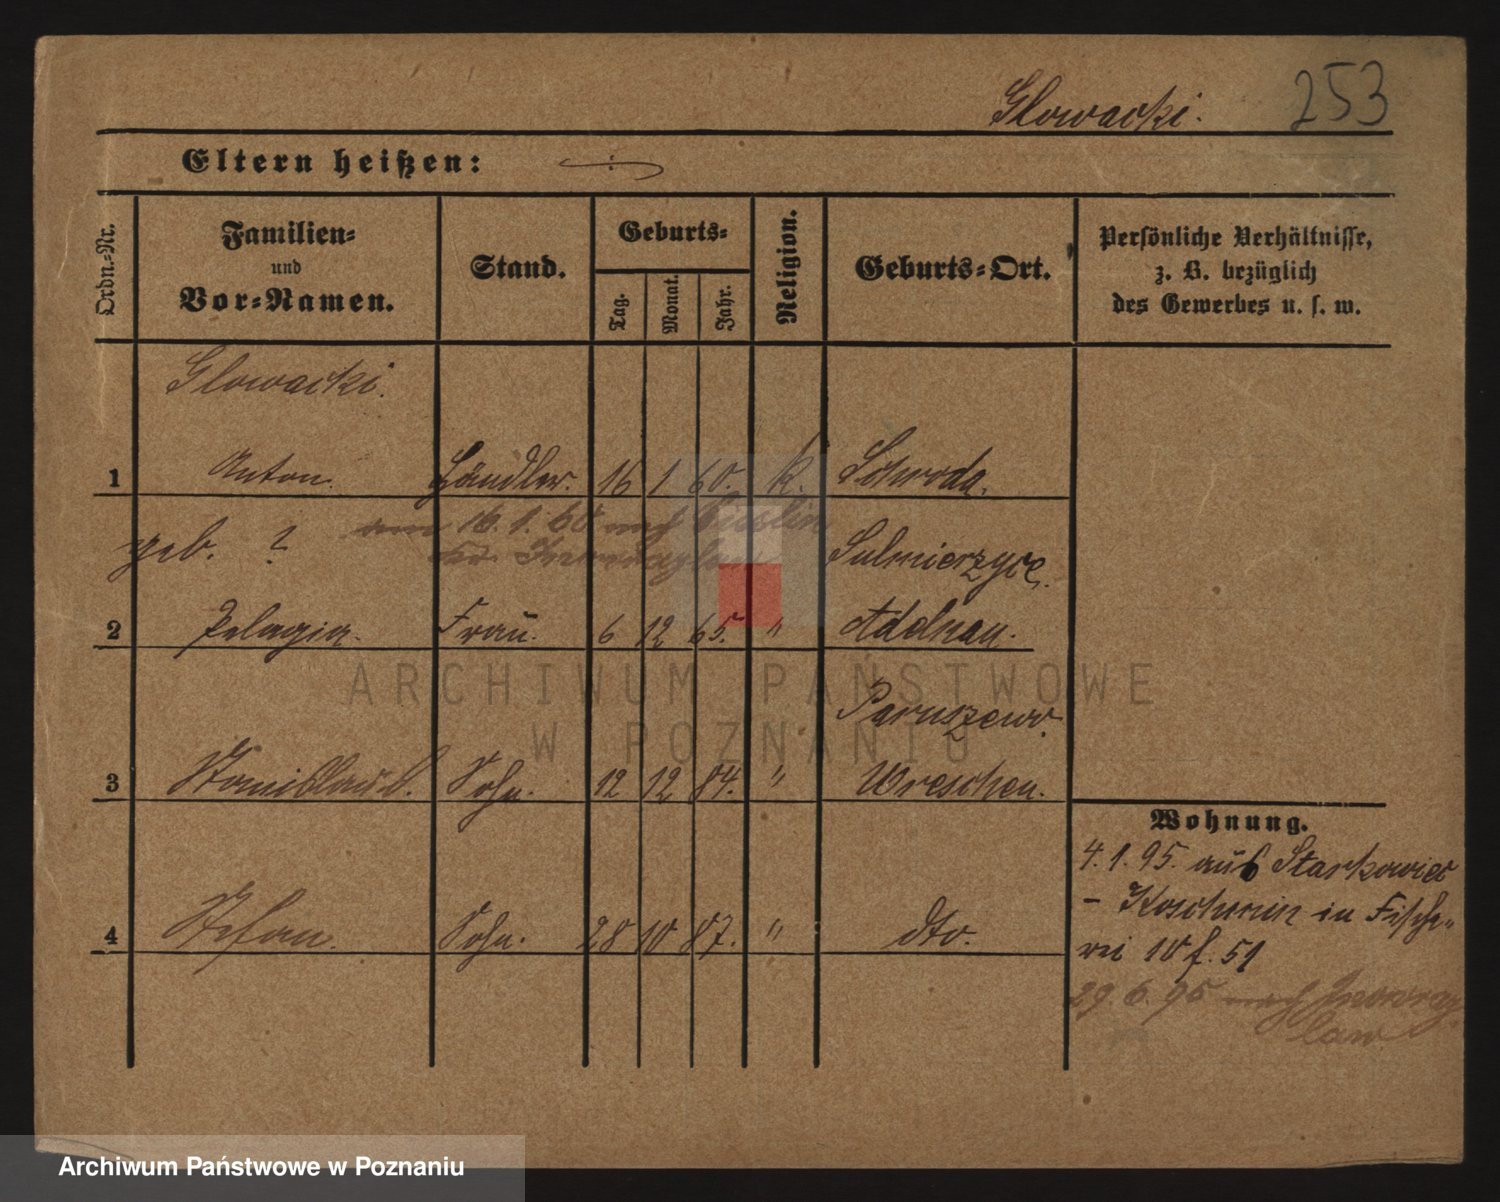 Glowacki. 253
Eltern heißen:
Ordn.-Nr.
Familien-
und
Vor-Namen.
Stand.
Geburts-
Tag.
Monat.
Jahr.
Religion.
Geburts-Ort.
Persönliche Verhältnisse,
z. B. bezüglich
des Gewerbes u. s. w.
Glowacki.
1 Anton. Händler. 16 1 60. k. Schroda.
am 16. 1. 60 nach
geb. ? Sulmierzyce.
2 Pelagia. Frau. 6 12 65. " Adelnau.
Paruszewo.
3 Stanislaus. Sohn. 12 12 84. " Wreschen.
4 Stefan. Sohn. 28 10 87. " dto.
Wohnung.
4.1.95. aus Starkowiec
- Koschmin in Fische-
rei 10 f. 51
29.6.95 nach Inowraz
law
ARCHIWUM PAŃSTWOWE
W POZNANIU
Archiwum Państwowe w Poznaniu